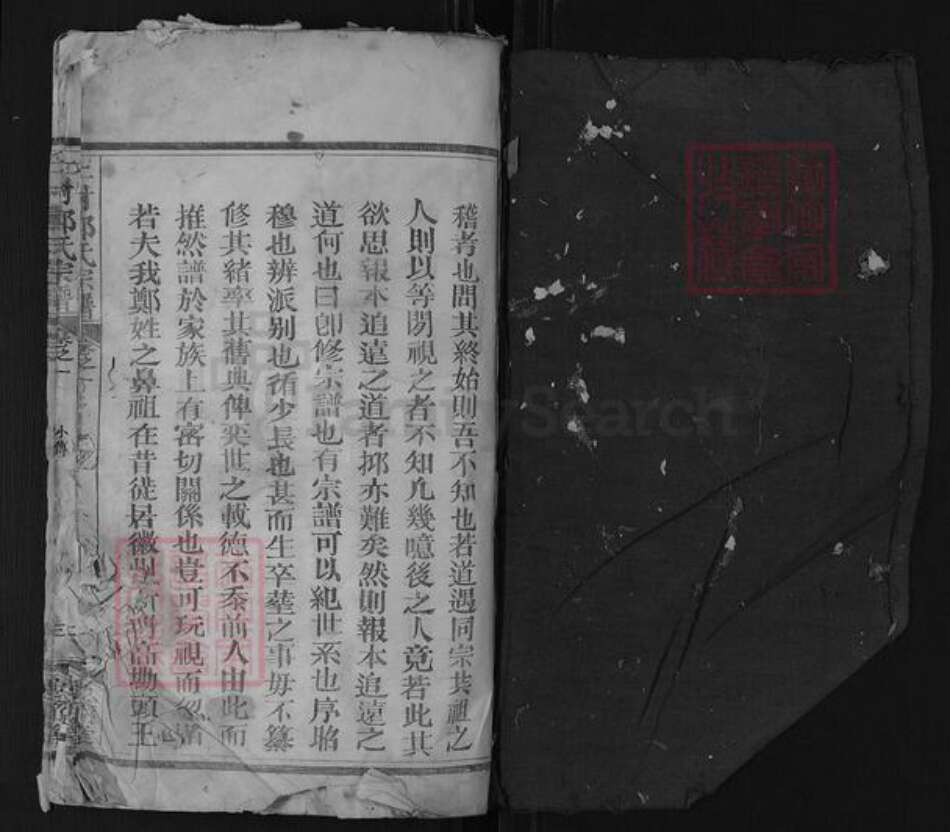 稽考也問其終始則吾不知也若道遇同宗共祖之
人則以等閒視之者不知凡幾噫後之人竟若此其
欲思報本追遠之道者抑亦難矣然則報本追遠之
道何也曰卽修宗譜也有宗譜可以紀世系也序昭
穆也辨派别也循少長也甚而生卒塟之事毋不纂
修其緒率其舊典俾奕世之載德不忝前人由此而
推然譜於家族上有密切關係也豈可玩視而忽諸
若夫我鄭姓之鼻祖在昔徙居徽
高坳頭王
氏宗譜
卷之一
FamilySearch